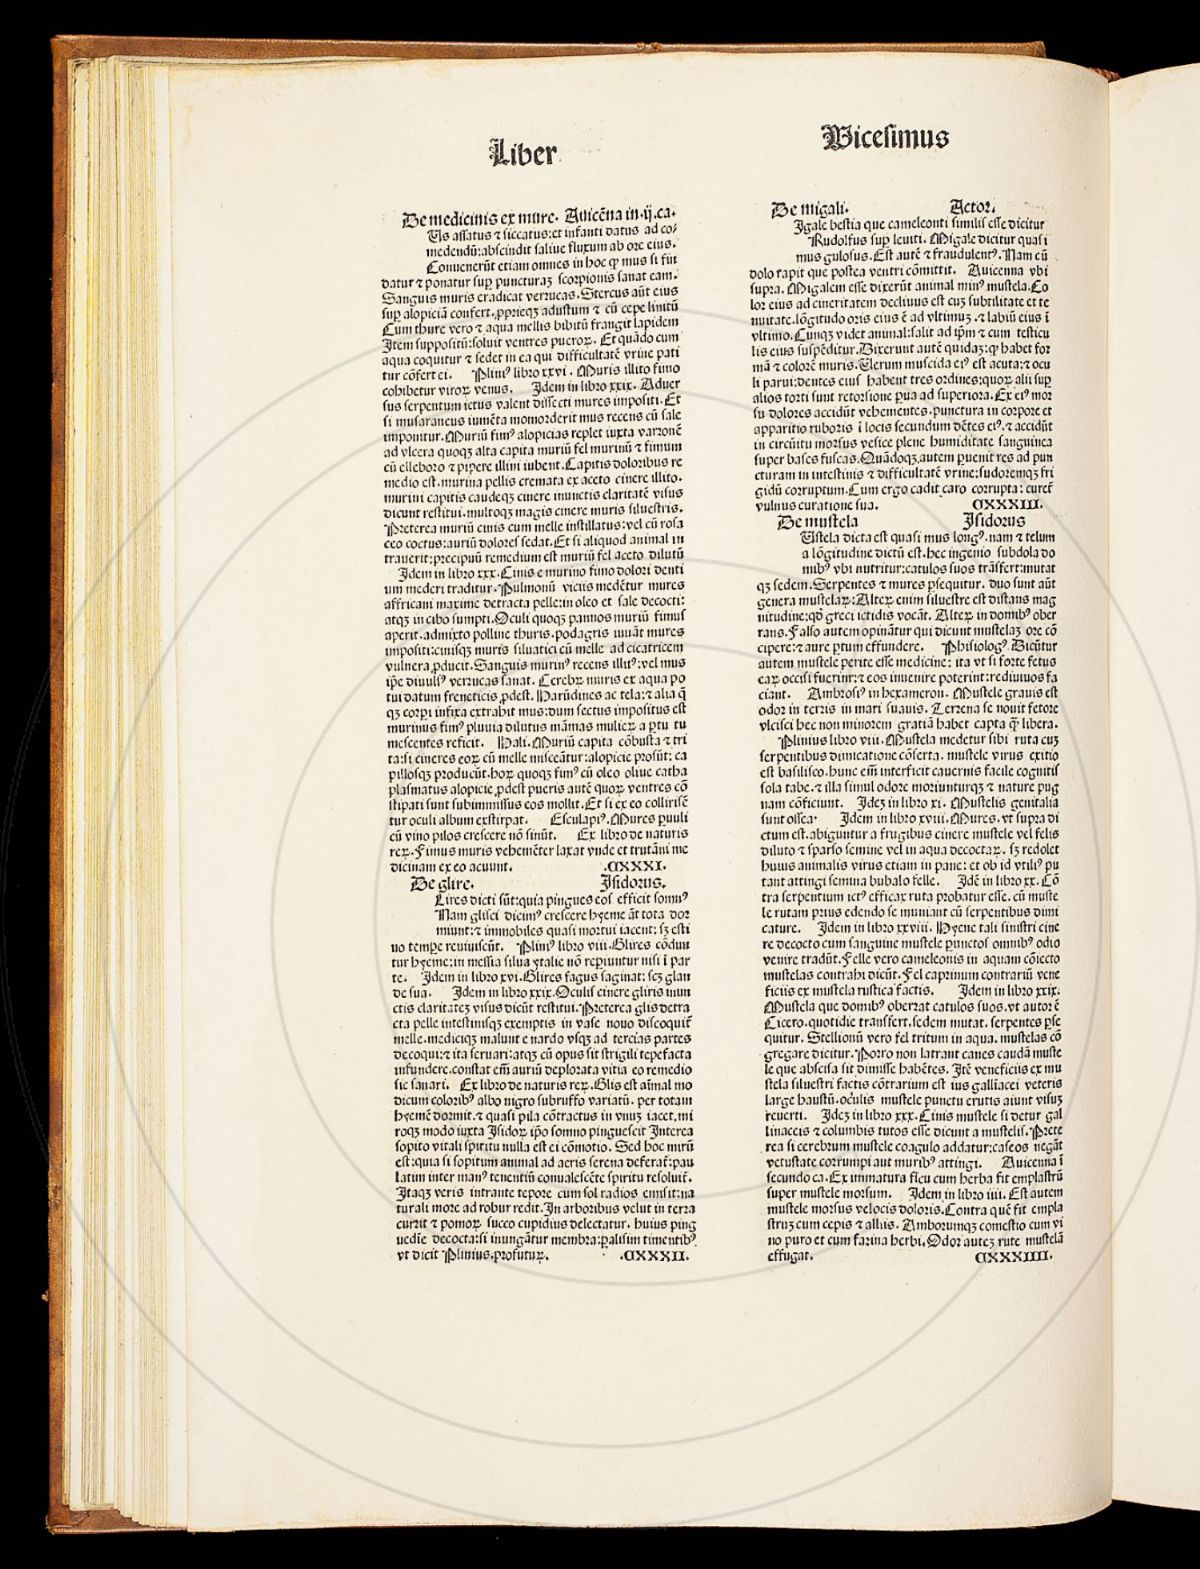 Liber
Vicesimus
De medicinis ex mure. Auicēna in .ij. ca.
Us assatus ⁊ siccatus: et infanti datus ad co/
medendū: abscindit saliue fluxum ab ore eius.
Conuenerūt etiam omnes in hoc ꝙ mus si fin
datur ⁊ ponatur sup puncturaꝫ scorpionis sanat eam.
Sanguis muris eradicat verrucas. Stercus aūt eius
sup alopiciā confert. ꝓprieqꝫ adustum ⁊ cū cepe linitū
Cum thure vero ⁊ aqua mellis bibitū frangit lapidem
Item suppositū: soluit ventres pueroꝝ. Et quādo cum
aqua coquitur ⁊ sedet in ea qui difficultatē vrine pati
tur cōfert ei. Pliniꝰ libro xxvi. Muris illito fimo
cohibetur viroꝝ venus. Idem in libro xxix. Aduer
sus serpentum ictus valent dissecti mures impositi. Et
si musaraneus iumēta momorderit mus recens cū sale
imponitur. Muriū fimꝰ alopicias replet iuxta varronē
ad vlcera quoqꝫ alta capita muriū fel murinū ⁊ fimum
cū elleboro ⁊ pipere illini iubent. Capitis doloribus re
medio est. murina pellis cremata ex aceto cinere illito.
murini capitis caudeqꝫ cinere inunctis claritatē visus
dicunt restitui. multoqꝫ magis cinere muris siluestris.
Preterea muriū cinis cum melle instillatus: vel cū rosa
ceo coctus: auriū dolores sedat. Et si aliquod animal in
trauerit: precipuū remedium est muriū fel aceto dilutū
Idem in libro xxx. Cinis e murino fimo dolori denti
um mederi traditur. Pulmonū viciis medētur mures
affricani maxime detracta pelle: in oleo et sale decocti:
atqꝫ in cibo sumpti. Oculi quoqꝫ pannos muriū fimus
aperit. admixto polline thuris. podagris iuuāt mures
impositi: cinisqꝫ muris siluatici cū melle ad cicatricem
vulnera ꝓducit. Sanguis murinꝰ recens illitꝰ: vel mus
ipe diuulsꝰ verrucas sanat. Cerebꝝ muris ex aqua po
tui datum freneticis ꝓdest. Harūdines ac tela: ⁊ alia q̄
qꝫ corpi infixa extrahit mus: dum sectus impositus est
murinus fimꝰ pluuia dilutus māmas mulieꝝ a ꝑtu tu
mescentes reficit. Hali. Muriū capita cōbusta ⁊ tri
ta: si cineres eoꝝ cū melle misceātur: alopicie prosūt: ca
pillosqꝫ producūt. hoꝝ quoqꝫ fimꝰ cū oleo oliue catha
plasmatus alopicie ꝓdest pueris autē quoꝝ ventres cō
stipati sunt subimmissus eos mollit. Et si ex eo collirisē
tur oculi album exstirpat. Esculapiꝰ. Mures puuli
cū vino pilos crescere nō sinūt. Ex libro de naturis
reꝝ. Fimus muris vehemēter laxat vnde et trutāni me
dicinam ex eo acuunt. .CXXXI.
De glire. Isidorus.
Lires dicti sūt: quia pingues eos efficit somnꝰ
Nam glisci dicimꝰ crescere hyeme āt tota dor
miunt: ⁊ immobiles quasi mortui iacent: sꝫ esti
uo tempe reuiuiscūt. Pliniꝰ libro viii. Glires cōdun
tur hyeme: in messia silua ytalie nō reperiuntur nisi ī par
te. Idem in libro xvi. Glires fagus saginat: scꝫ glan
de sua. Idem in libro xxix. Oculis cinere gliris inun
ctis claritateꝫ visus dicūt restitui. Preterea glis detra
cta pelle intestinisqꝫ exemptis in vase nouo discoquit̄
melle. mediciqꝫ malunt e nardo vsqꝫ ad tercias partes
decoqui: ⁊ ita seruari: atqꝫ cū opus sit strigili tepefacta
infundere. constat em̄ auriū deplorata vitia eo remedio
sic sanari. Ex libro de naturis reꝝ. Glis est aīmal mo
dicum coloribꝰ albo nigro subruffo variatū. per totam
hyemē dormit. ⁊ quasi pila cōtractus in vnuꝫ iacet. mi
roqꝫ modo iuxta Isidoꝝ ipo somno pinguescit Interea
sopito vitali spiritu nulla est ei cōmotio. Sed hoc mirū
est: quia si sopitum animal ad aeris serena deferat̄: pau
latim inter manꝰ tenentiū conualescēte spiritu resoluit̄.
Itaqꝫ veris intrante tepore cum sol radios emisit: na
turali more ad robur redit. In arboribus velut in terra
currit ⁊ pomoꝝ succo cupidius delectatur. huius ping
uedie decocta: si inungātur membra: palisim timentibꝰ
vt dicit Plinius. profuturꝝ. .CXXXII.
De migali. Actor.
Igale bestia que cameleonti similis esse dicitur
Rudolfus sup leuiti. Migale dicitur quasi
mus gulosus. Est autē ⁊ fraudulentꝰ. Nam cū
dolo rapit que postea ventri cōmittit. Auicenna vbi
supra. Migalem esse dixerūt animal minꝰ mustela. Co
lor eius ad cineritatem decliuus est cuꝫ subtilitate et te
nuitate. lōgitudo oris eius ē ad vltimuꝫ. ⁊ labiū eius ī
vltimo. Cunqꝫ videt animal: salit ad ip̄m ⁊ cum testicu
lis eius suspēditur. Dixerunt autē quidaꝫ: ꝙ habet for
mā ⁊ colorē muris. Verum muscida eiꝰ est acuta: ⁊ ocu
li parui: dentes eius habent tres ordines: quoꝝ alii sup
alios torti sunt retorsione ꝑua ad superiora. Ex eiꝰ mor
su dolores accidūt vehementes. punctura in corpore et
apparitio ruboris ī locis secundum dētes eiꝰ. ⁊ accidūt
in circūitu morsus vesice plene humiditate sanguinea
super bases fuscas. Quādoqꝫ autem puenit res ad pun
cturam in intestinis ⁊ difficultatē vrine: sudoremqꝫ fri
gidū corruptum. Cum ergo cadit caro corrupta: curet̄
vulnus curatione sua. CXXXIII.
De mustela Isidorus
Ustela dicta est quasi mus longꝰ. nam ⁊ telum
a lōgitudine dictū est. hec ingenio subdola do
mibꝰ vbi nutritur: catulos suos trāsfert: mutat
qꝫ sedem. Serpentes ⁊ mures ꝑsequitur. duo sunt aūt
genera mustelaꝝ: Alteꝝ enim siluestre est distans mag
nitudine: qđ greci ictidis vocāt. Alteꝝ in domibꝰ ober
rans. Falso autem opinātur qui dicunt mustelaꝫ ore cō
cipere: ⁊ aure ꝑtum effundere. Phisiologꝰ. Dicūtur
autem mustele perite esse medicine: ita vt si forte fetus
eaꝝ occisi fuerint: ⁊ eos inuenire poterint: rediuiuos fa
ciant. Ambrosiꝰ in hexameron. Mustele grauis est
odor in terris in mari suauis. Terrena se nouit fetore
vlcisci hec non minorem gratiā habet capta ꝙ̄ libera.
Plinius libro viii. Mustela medetur sibi ruta cuꝫ
serpentibus dimicatione cōserta. mustele virus exitio
est basilisco. hunc em̄ interficit cauernis facile cognitis
sola tabe. ⁊ illa simul odore moriunturqꝫ ⁊ nature pug
nam cōficiunt. Ideꝫ in libro xi. Mustelis genitalia
sunt ossea. Idem in libro xviii. Mures. vt supra di
ctum est. abiguntur a frugibus cinere mustele vel felis
diluto ⁊ sparso semine vel in aqua decoctaꝝ. sꝫ redolet
huius animalis virus etiam in pane: et ob id vtiliꝰ pu
tant attingi semina bubalo felle. Idē in libro xx. Cō
tra serpentium ictꝰ efficax ruta probatur esse. cū muste
le rutam prius edendo se muniant cū serpentibus dimi
cature. Idem in libro xxviii. Hyene tali sinistri cine
re decocto cum sanguine mustele ꝑunctos omnibꝰ odio
venire tradūt. Felle vero cameleonis in aquam cōiecto
mustelas contrahi dicūt. Fel caprinum contrariū vene
ficiis ex mustela rustica factis. Idem in libro xxix.
Mustela que domibꝰ oberrat catulos suos. vt autor ē
Cicero. quotidie transfert. sedem mutat. serpentes ꝑse
quitur. Stellionū vero fel tritum in aqua. mustelas cō
gregare dicitur. Porro non latrant canes caudā muste
le que abscisa sit dimisse habētes. Itē veneficiis ex mu
stela siluestri factis cōtrarium est ius gallinacei veteris
large haustū. oculis mustele punctu erutis aiunt visuꝫ
reuerti. Ideꝫ in libro xxx. Cinis mustele si detur gal
linaceis ⁊ columbis tutos esse dicunt a mustelis. Prete
rea si cerebrum mustele coagulo addatur: caseos negāt
vetustate corrumpi aut muribꝰ attingi. Auicenna ī
secundo ca. Ex immatura ficu cum herba fit emplastrū
super mustele morsum. Idem in libro iiii. Est autem
mustele morsus velocis doloris. Contra quē fit empla
struꝫ cum cepis ⁊ alliis. Amborumqꝫ comestio cum vi
no puro et cum farina herbi. Odor auteꝫ rute mustelā
effugat. CXXXIIII.